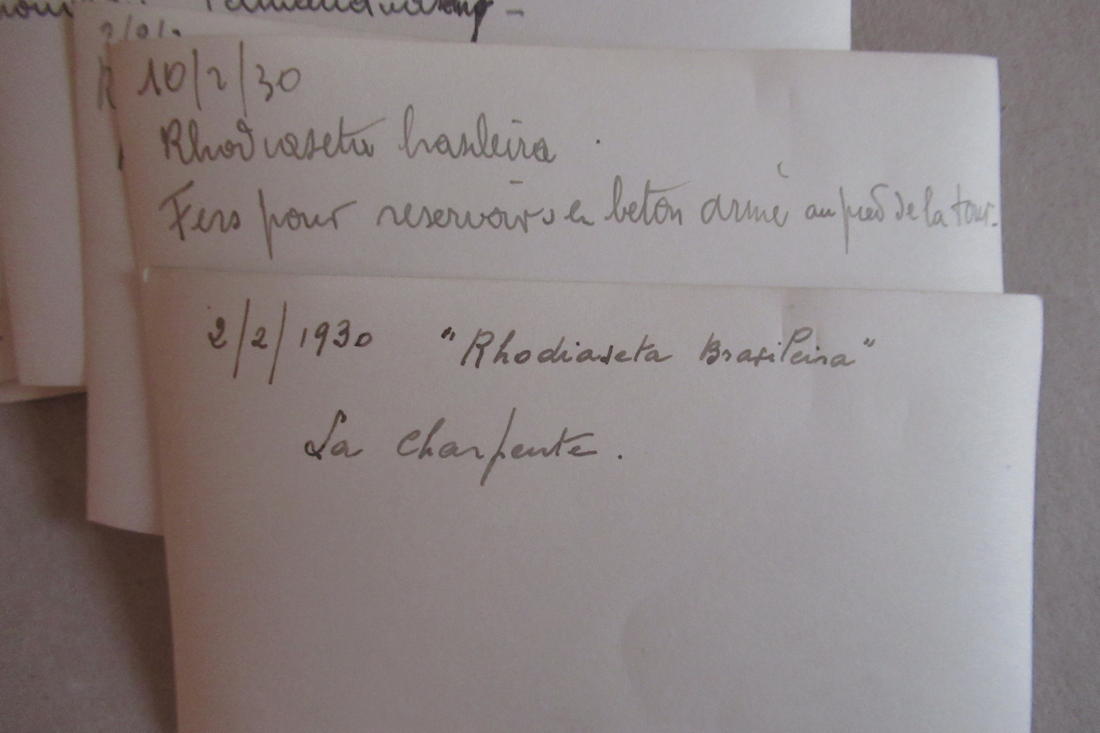 10/2/30
Rhodiaseta brasileira.
Fers pour reservoirs en béton armé au pied de la tour.
2/2/1930 "Rhodiaseta Brasileira"
La Charpente.